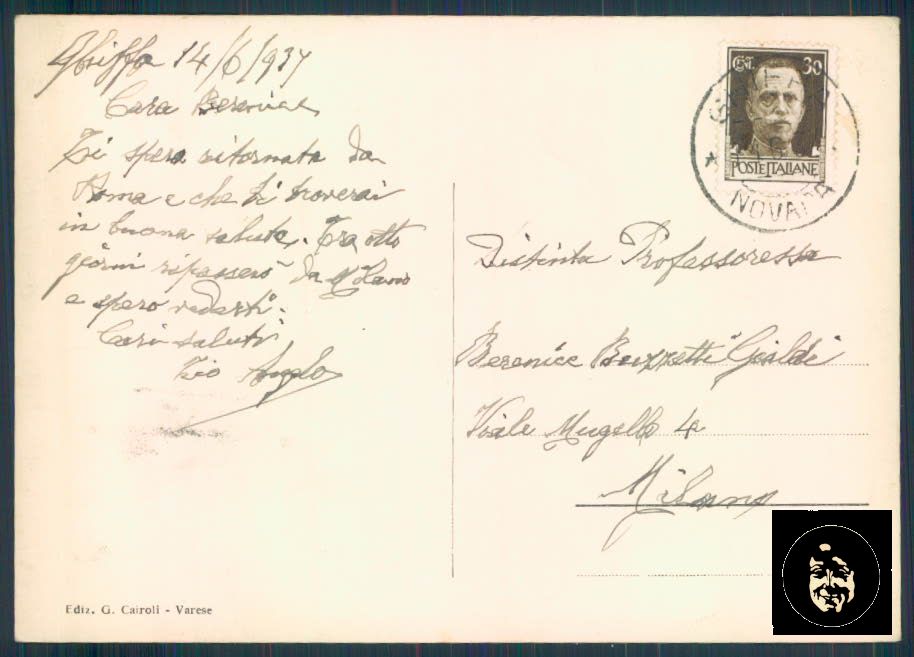 Ghiffa 14/6/937
Cara Berenice
Ti spero ritornata da
Roma e che ti troverai
in buona salute. Tra otto
giorni ripasserò da Milano
e spero vederti.
Cari saluti
Zio Angelo
Ediz. G. Cairoli - Varese
CENT. 30
POSTE ITALIANE
NOVARA
Distinta Professoressa
Berenice Buzzetti Gialdi
Viale Mugello 4
Milano